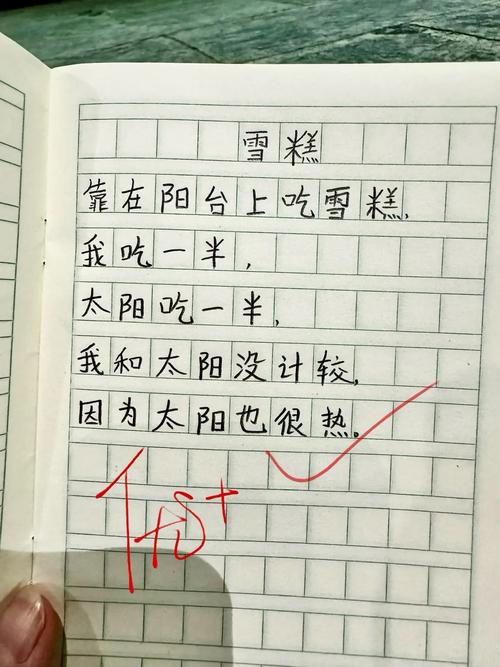 雪糕
靠在阳台上吃雪糕,
我吃一半,
太阳吃一半,
我和太阳没计较,
因为太阳也很热。